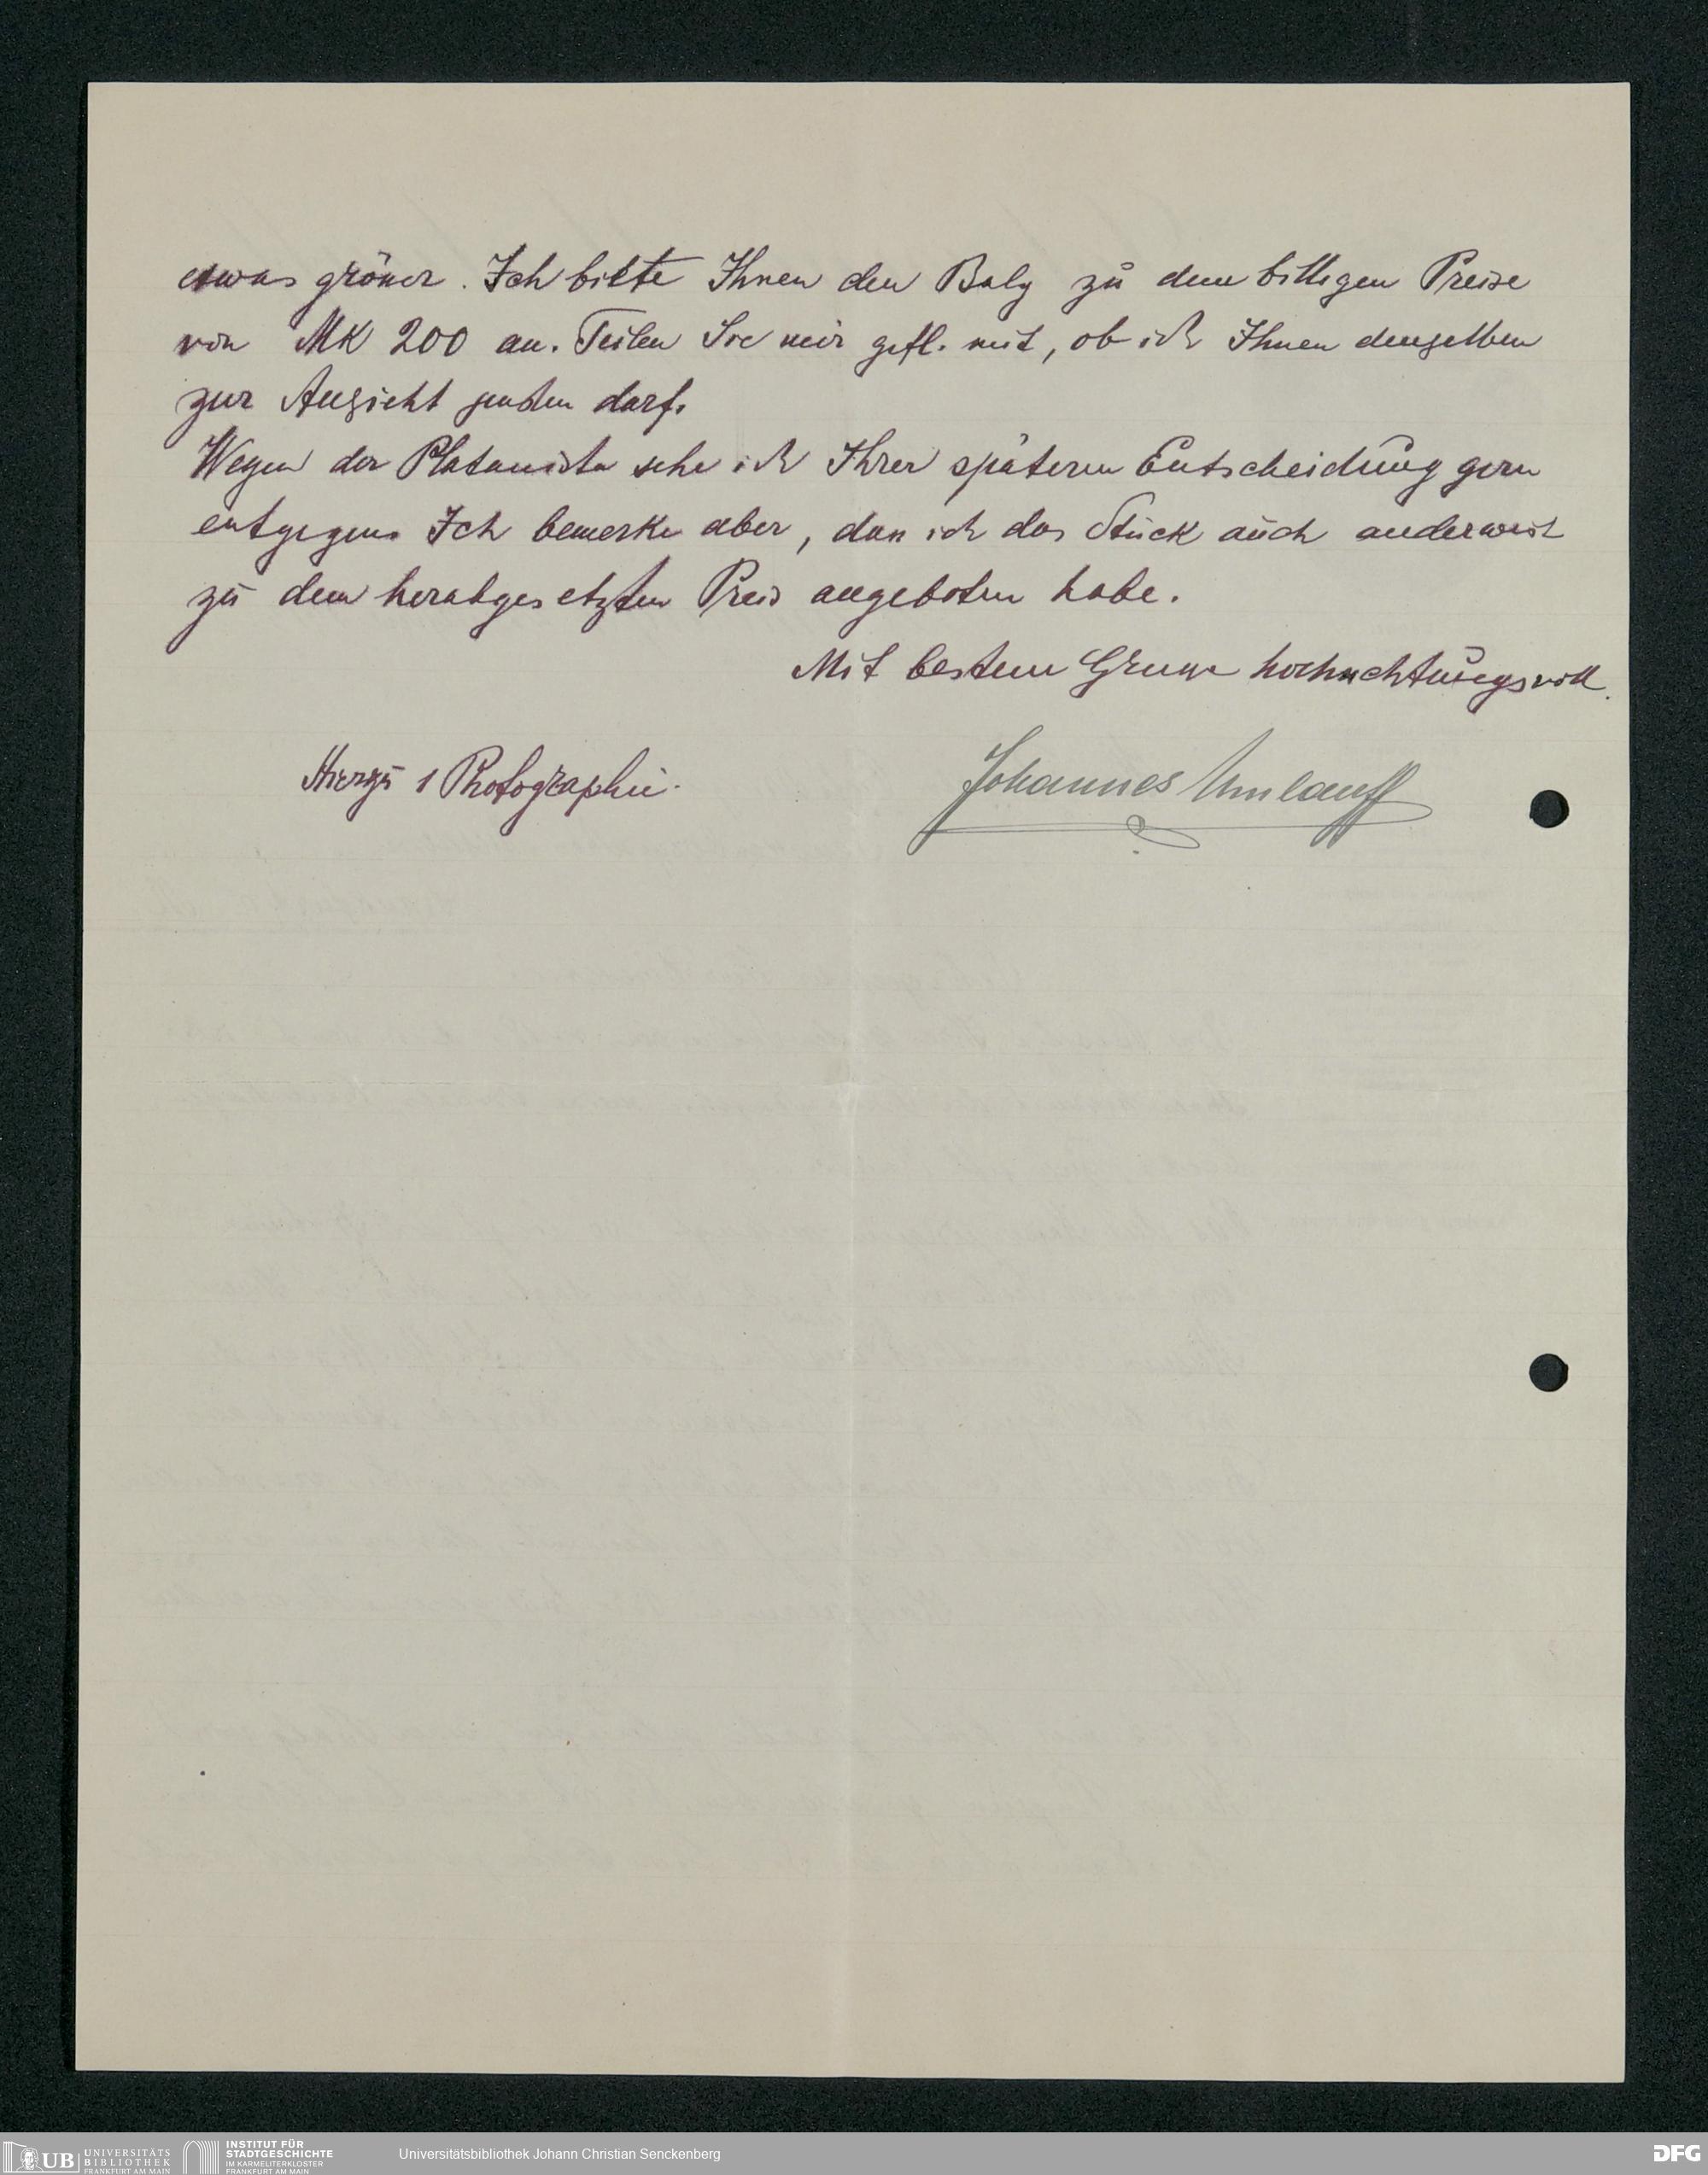 etwas größer. Ich biete Ihnen den Balg zu dem billigen Preise
von Mk 200 an. Teilen Sie mir gefl. mit, ob ich Ihnen denselben
zur Ansicht senden darf.
Wegen der Platanista sehe ich Ihrer späteren Entscheidung gern
entgegen. Ich bemerke aber, dass ich das Stück auch anderweit
zu dem herabgesetzten Preis angeboten habe.
Mit bestem Gruss hochachtungsvoll.
Hierzu 1 Photographie.
Johannes Umlauff
UB UNIVERSITÄTS
BIBLIOTHEK
FRANKFURT AM MAIN
INSTITUT FÜR
STADTGESCHICHTE
IM KARMELITERKLOSTER
FRANKFURT AM MAIN
Universitätsbibliothek Johann Christian Senckenberg
DFG